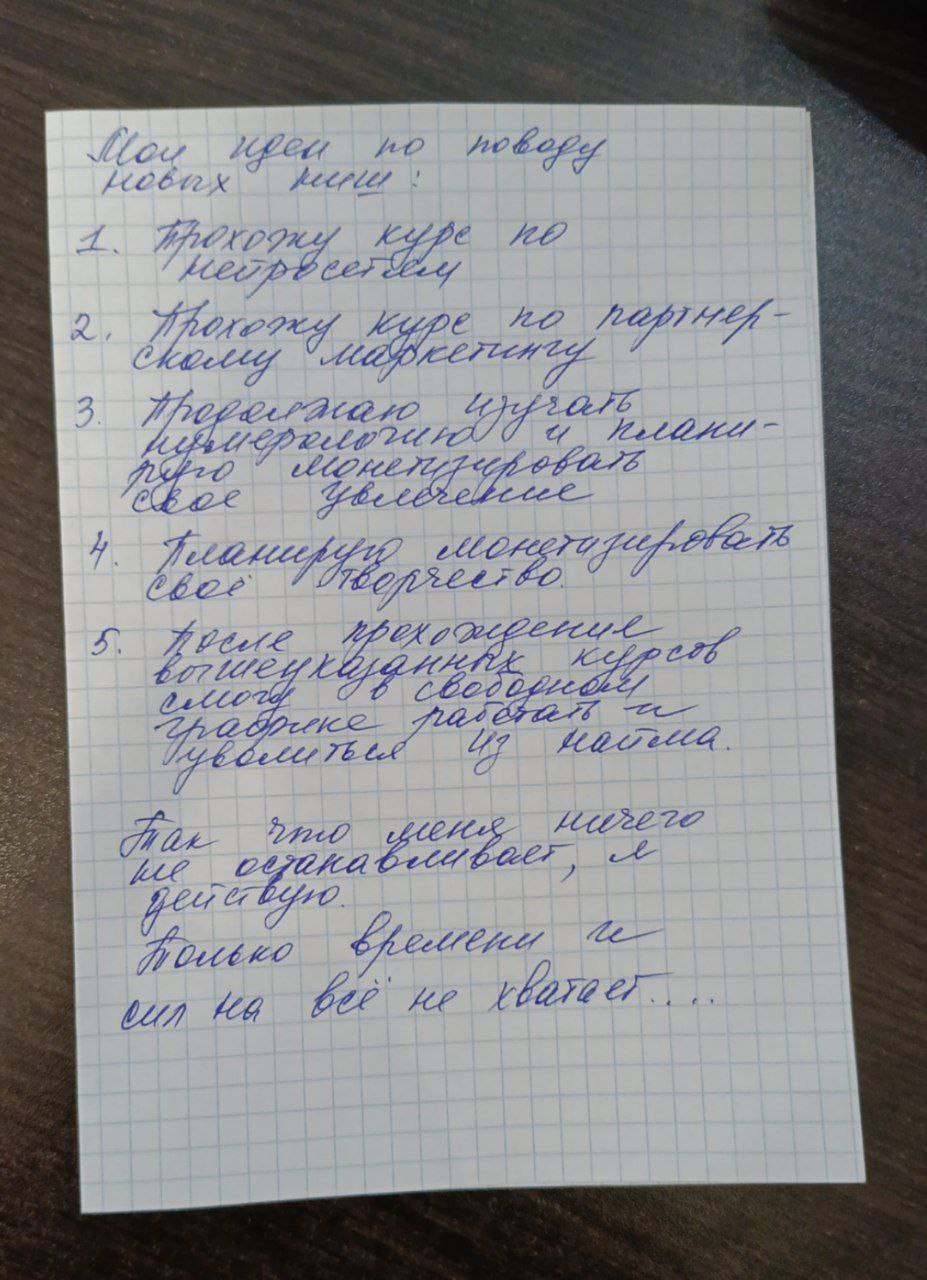 Мои идеи по поводу
новых ниш:
1. Прохожу курс по
нейросетям
2. Прохожу курс по партнер-
скому маркетингу
3. Продолжаю изучать
нумерологию и плани-
рую монетизировать
свое увлечение
4. Планирую монетизировать
своё творчество.
5. После прохождения
вышеуказанных курсов
смогу в свободном
графике работать и
уволиться из найма.
Так что меня ничего
не останавливает, я
действую.
Только времени и
сил на всё не хватает....